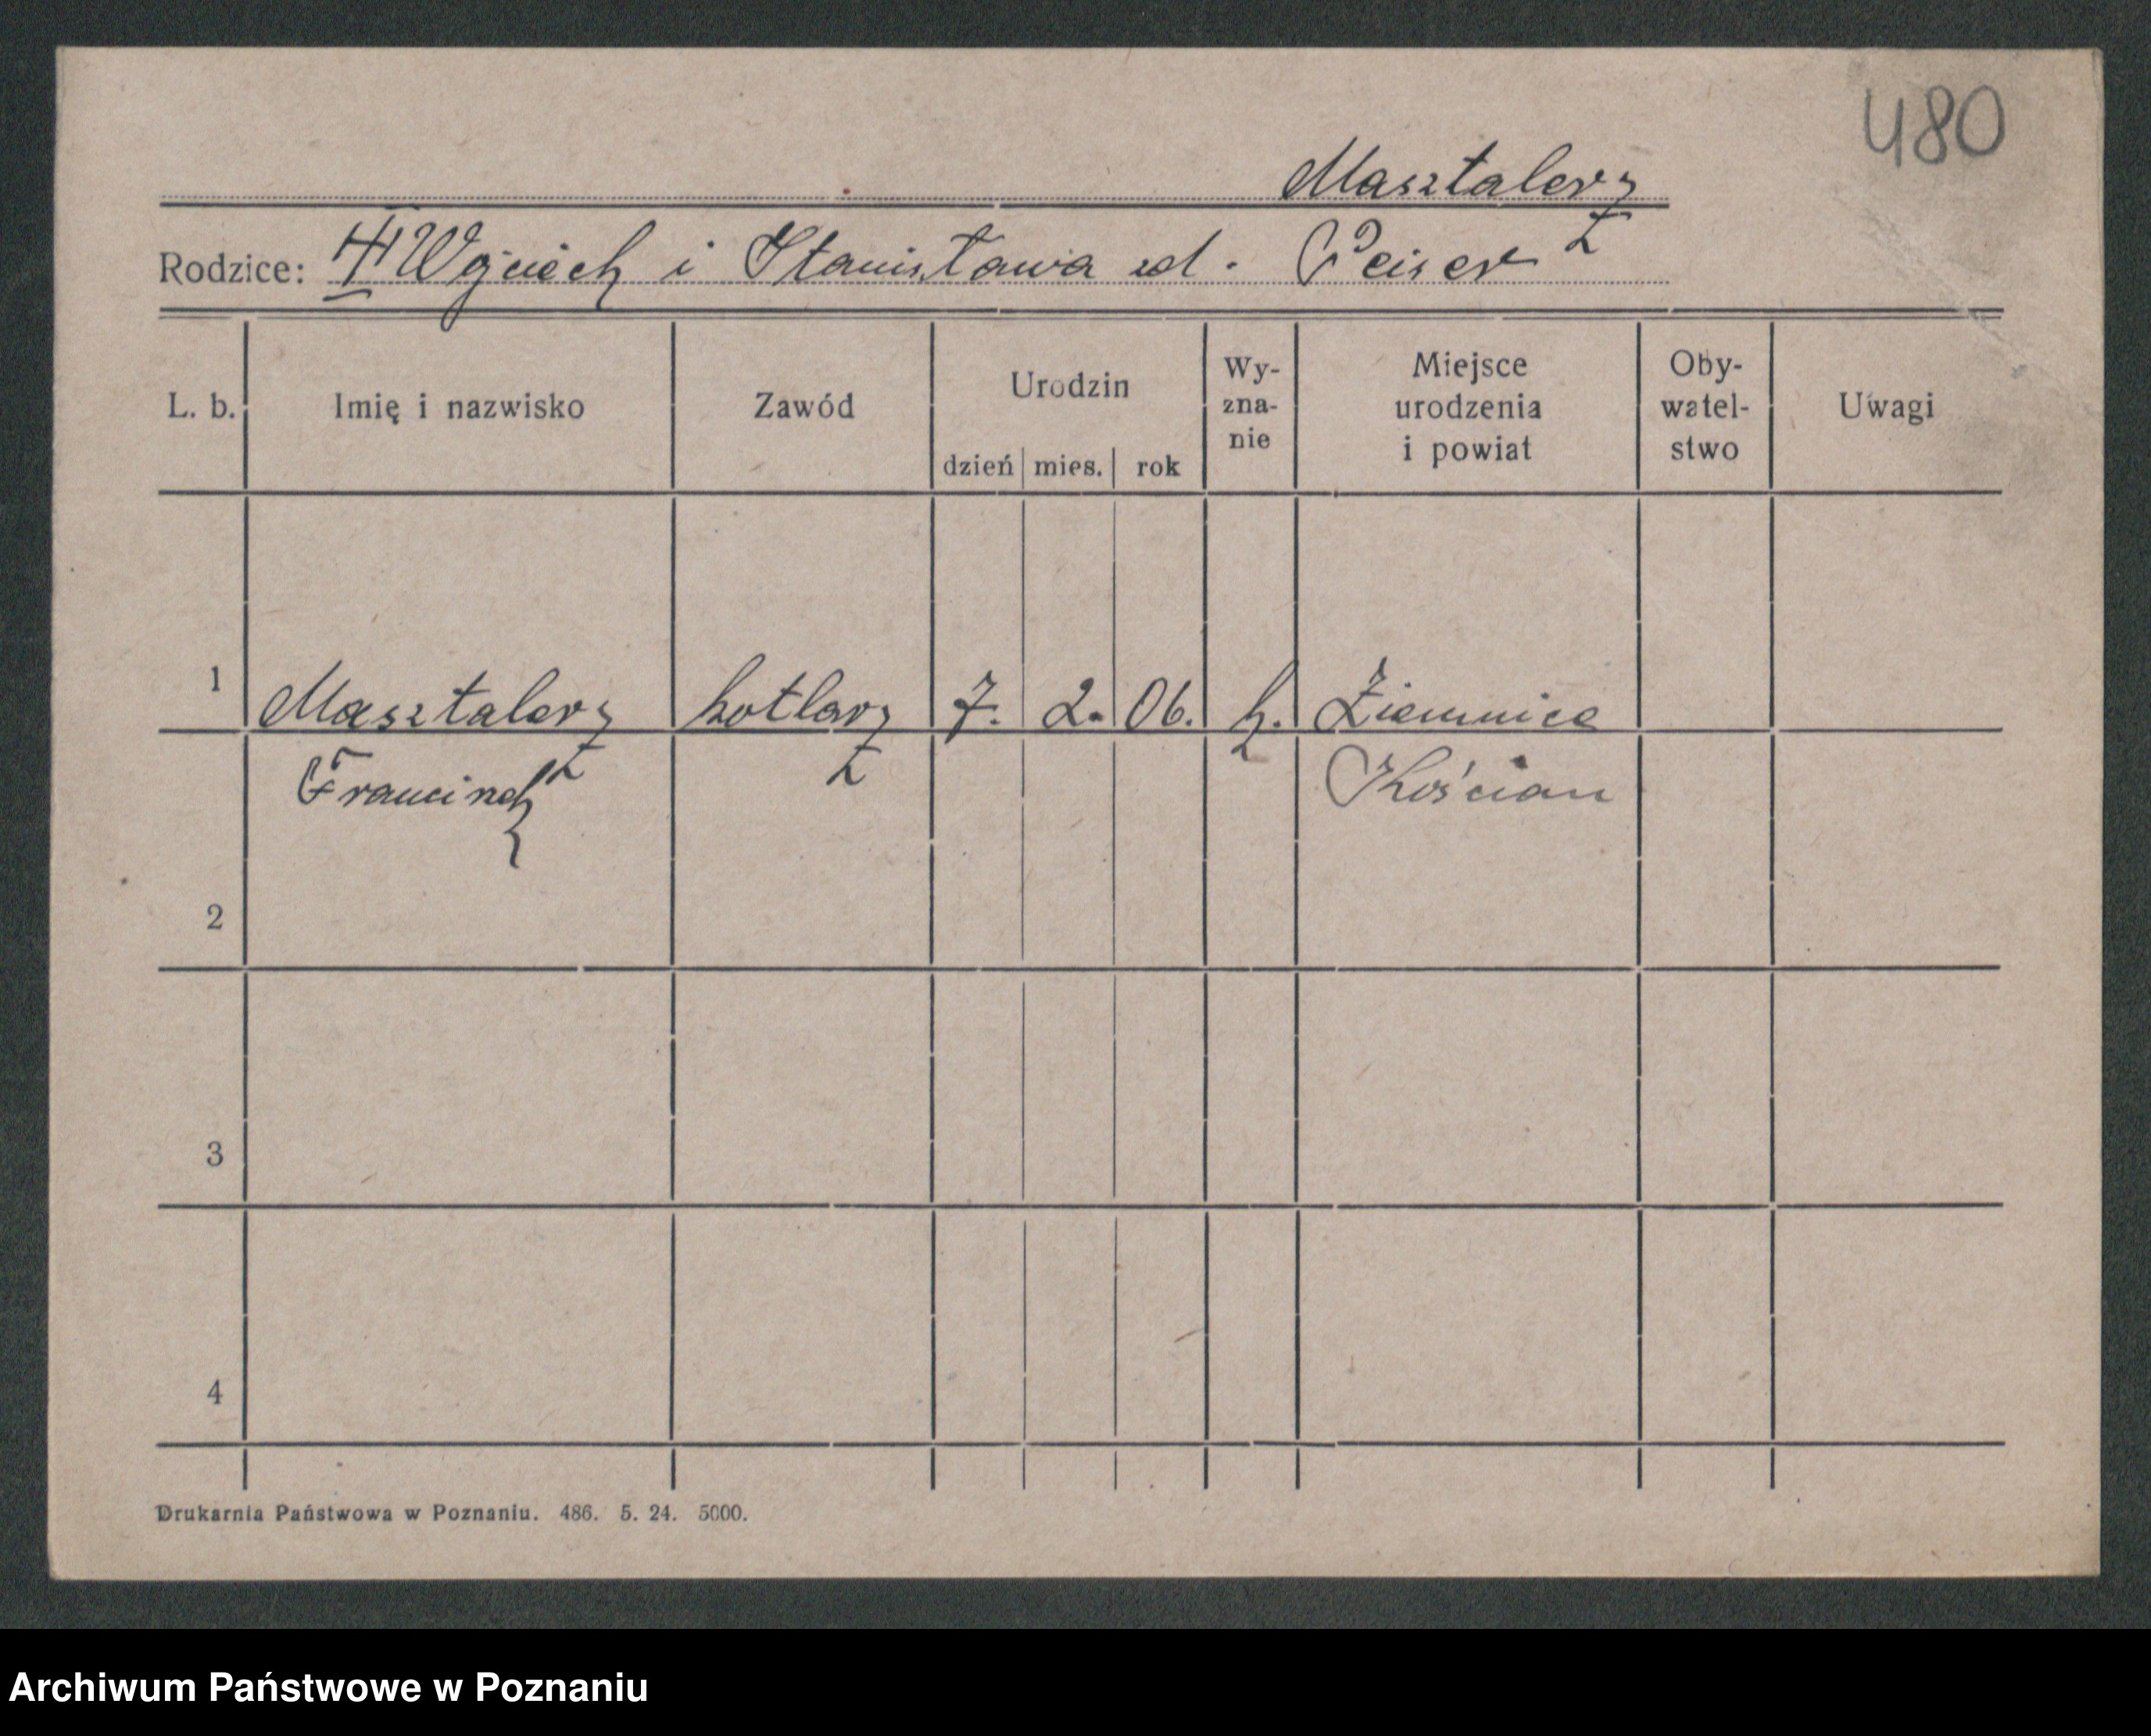 480
Masztalerz
Rodzice: Wojciech i Stanisława zd. Peiser
L. b. Imię i nazwisko Zawód Urodzin dzień mies. rok Wy-zna-nie Miejsce urodzenia i powiat Oby-watel-stwo Uwagi
1 Masztalerz kotlarz 7. 2. 06. k. Ziemnice
Franciszek Kościan
2
3
4
Drukarnia Państwowa w Poznaniu. 486. 5. 24. 5000.
Archiwum Państwowe w Poznaniu